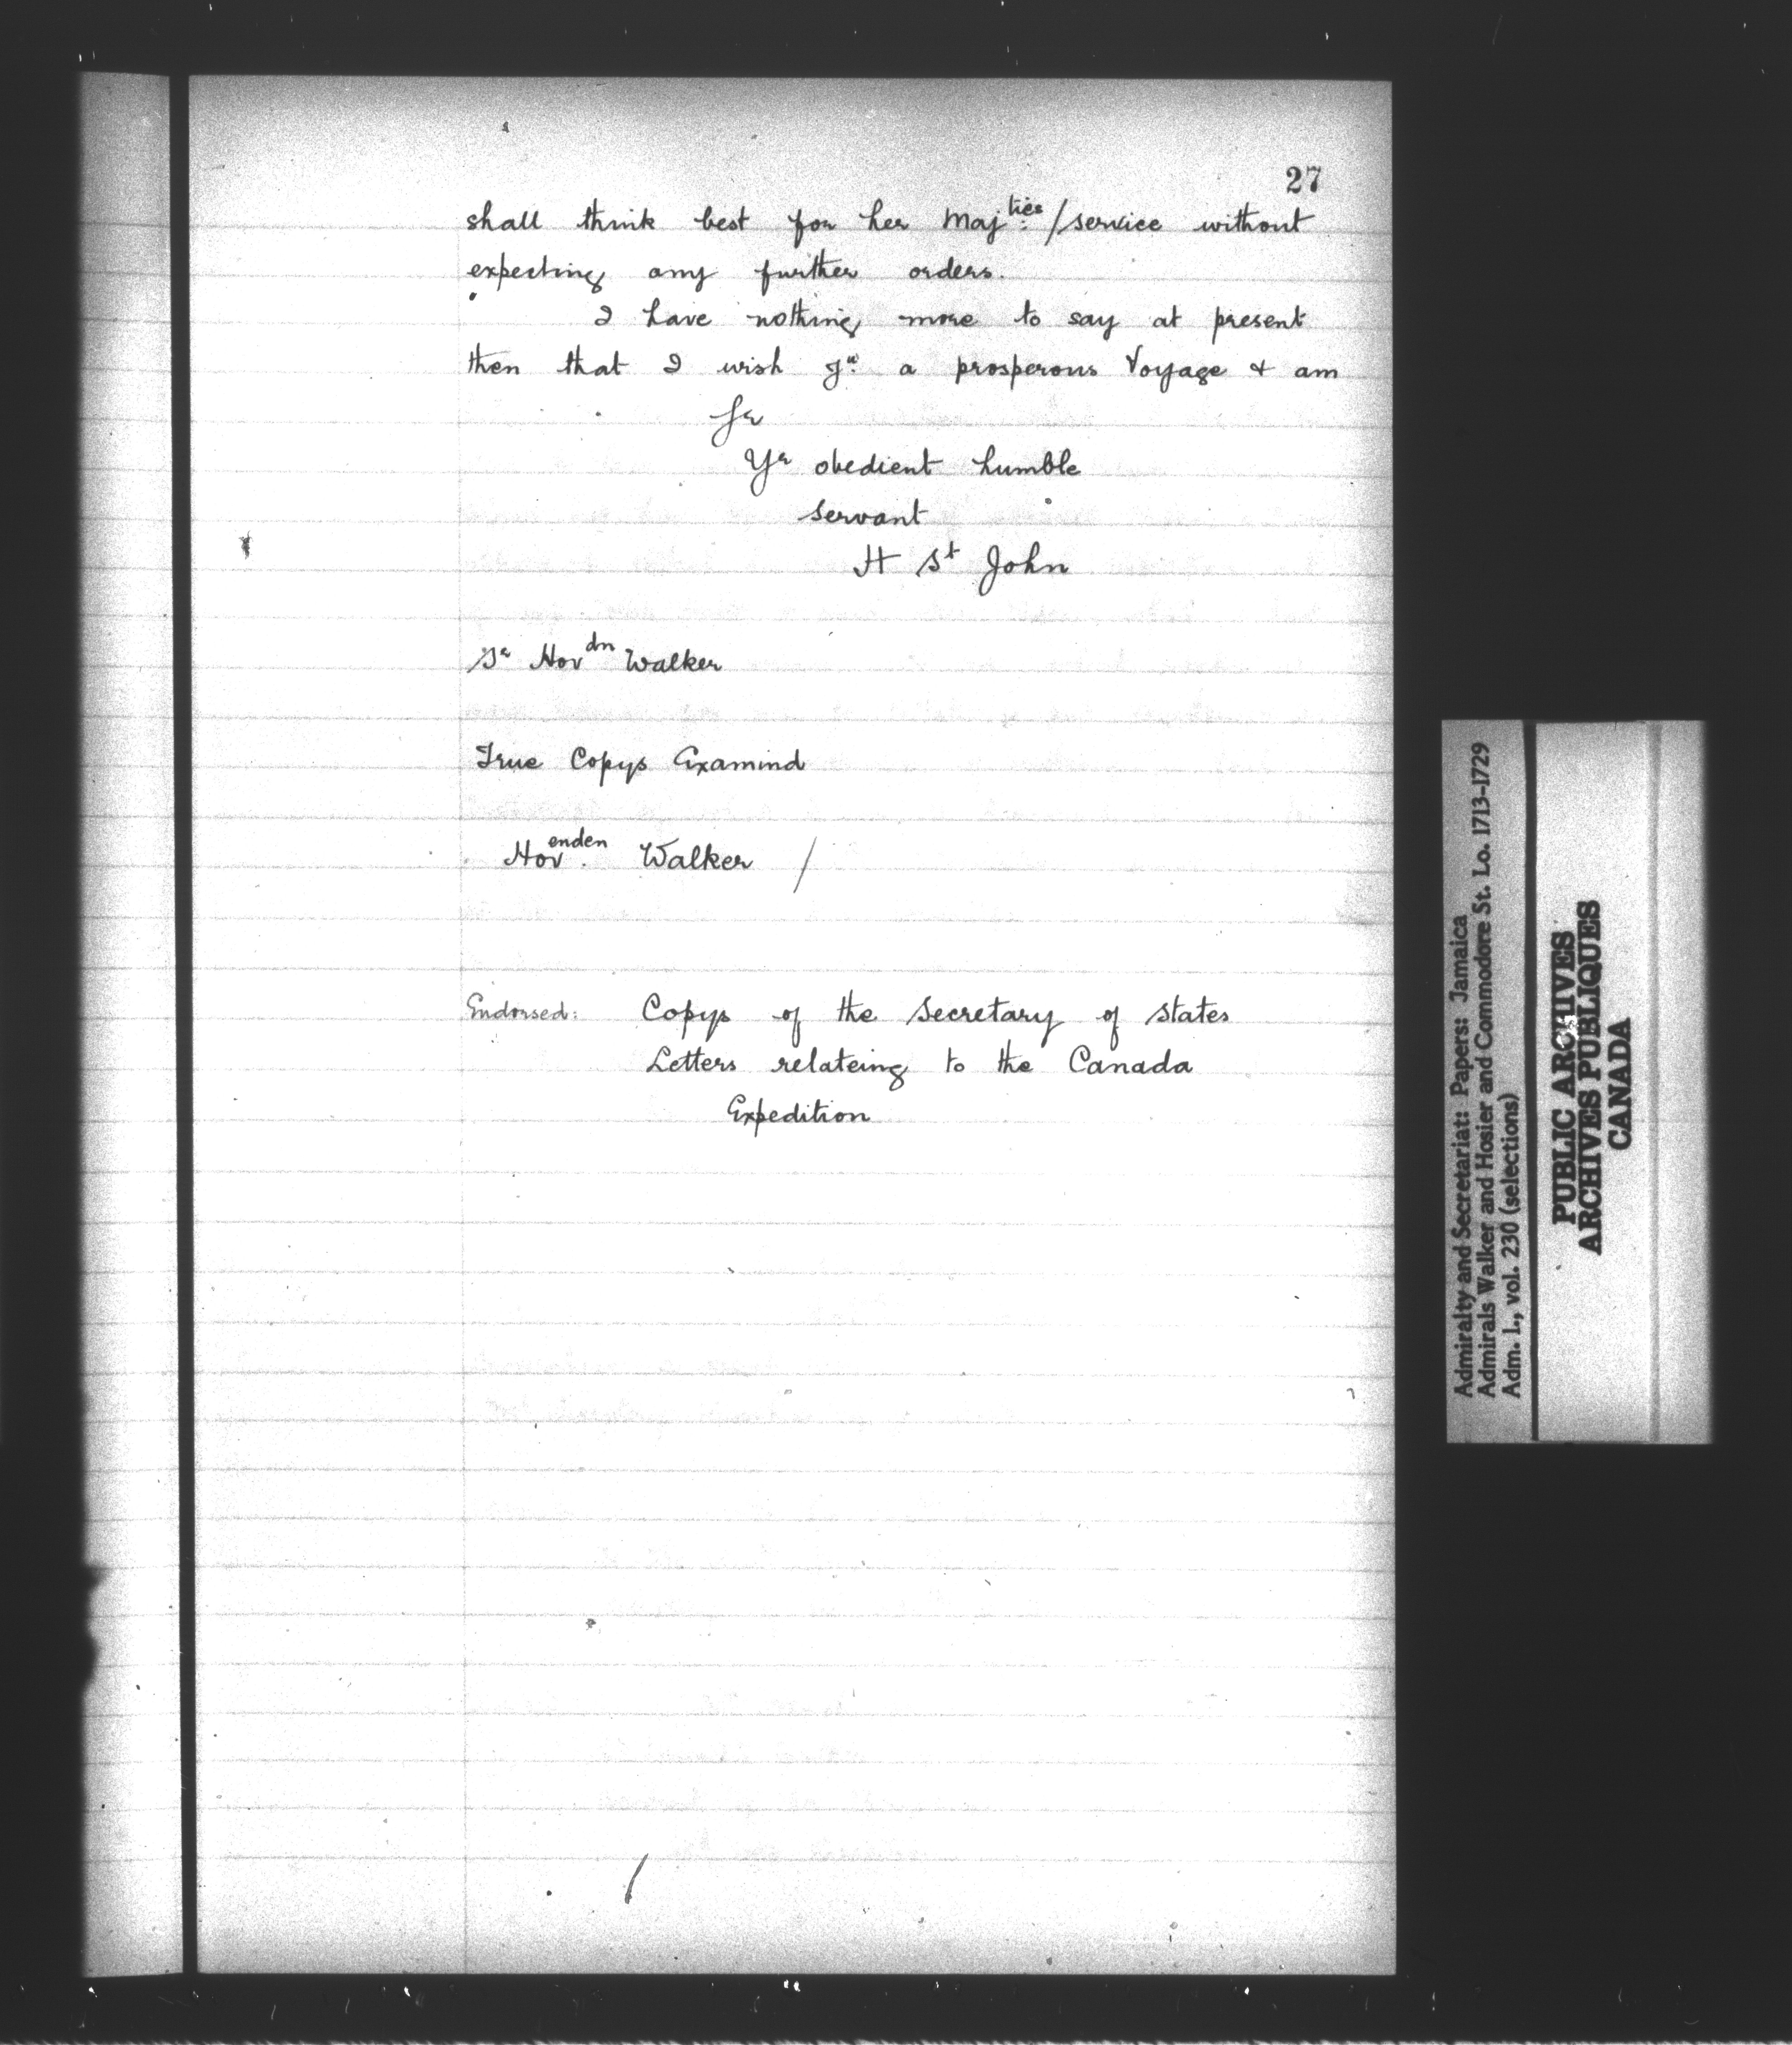 27
shall think best for her Maj:ties / service without
expecting any further orders.
I have nothing more to say at present
then that I wish yu: a prosperous Voyage & am
Sr
Yr obedient humble
servant
H St John
Sr Hovdn Walker
True Copys Examind
Hovenden. Walker /
Endorsed: Copys of the Secretary of States
Letters relateing to the Canada
Expedition
Admiralty and Secretariat: Papers: Jamaica
Admirals Walker and Hosier and Commodore St. Lo. 1713-1729
Adm. 1., vol. 230 (selections)
PUBLIC ARCHIVES
ARCHIVES PUBLIQUES
CANADA